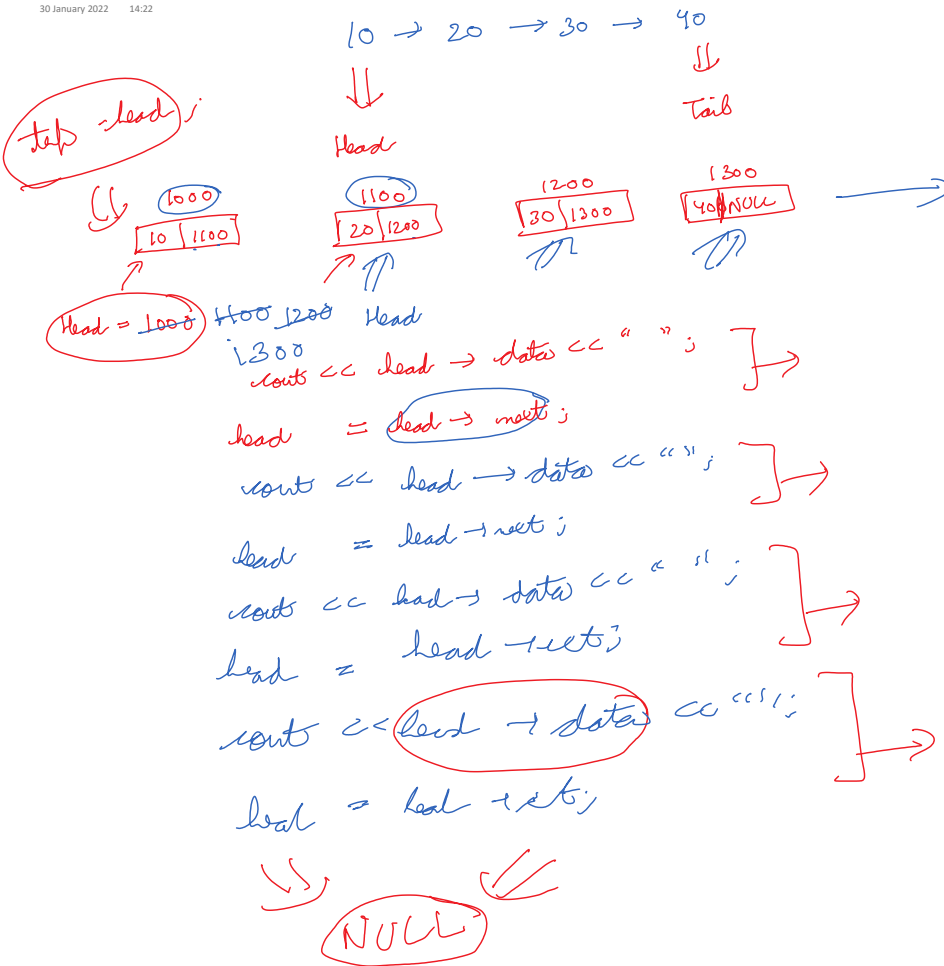 30 January 2022 14:22
10 → 20 → 30 → 40
Head
Tail
temp = head ;
1000
1100
1200
1300
10 | 1100
20 | 1200
30 | 1300
40 | NULL
Head = 1000 1100 1200 Head
1300
cout << head → data << " " ;
head = head → next ;
cout << head → data << " " ;
head = head → next ;
cout << head → data << " " ;
head = head → next ;
cout << head → data << " " ;
head = head → next ;
NULL